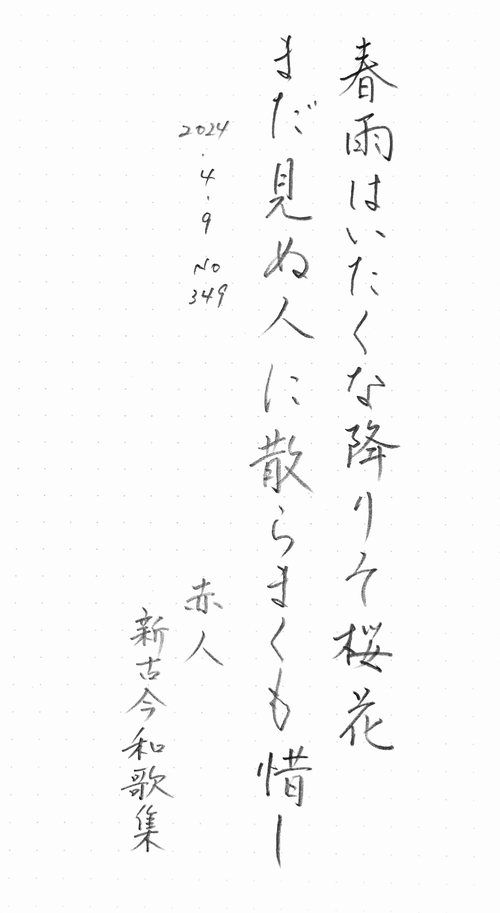 春雨はいたくな降りそ桜花
まだ見ぬ人に散らまくも惜し
2024.4.9 No 349
赤人
新古今和歌集